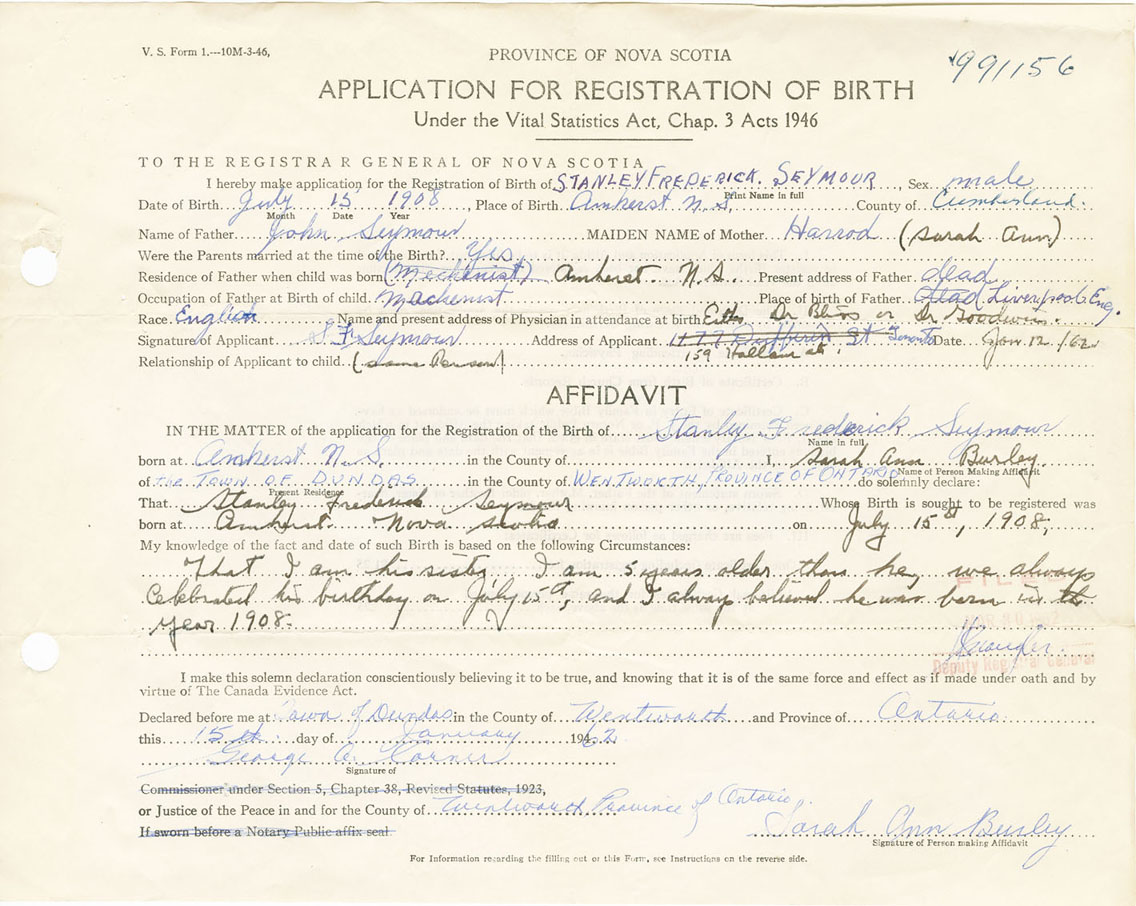 V. S. Form 1.---10M-3-46,
PROVINCE OF NOVA SCOTIA
991156
APPLICATION FOR REGISTRATION OF BIRTH
Under the Vital Statistics Act, Chap. 3 Acts 1946
TO THE REGISTRAR GENERAL OF NOVA SCOTIA
I hereby make application for the Registration of Birth of STANLEY FREDERICK SEYMOUR, Sex male
Print Name in full
Date of Birth July 15 1908, Place of Birth Amherst N.S. County of Cumberland.
Month Date Year
Name of Father John Seymour MAIDEN NAME of Mother Harrod (Sarah Ann)
Were the Parents married at the time of the Birth? Yes
Residence of Father when child was born (Mechenist) Amherst N.S. Present address of Father dead
Occupation of Father at Birth of child Machenist Place of birth of Father dead (Liverpool Eng.
Race English Name and present address of Physician in attendance at birth Dr Bliss or Dr Goodwin.
Signature of Applicant S F Seymour Address of Applicant 1177 Dufferin St Toronto Date Jan. 12 /62
159 Hallam st.
Relationship of Applicant to child (same Person)
AFFIDAVIT
IN THE MATTER of the application for the Registration of the Birth of Stanley Frederick Seymour
Name in full
born at Amherst N.S. in the County of I, Sarah Ann Burley
Name of Person Making Affidavit
of the TOWN OF DUNDAS in the County of WENTWORTH, PROVINCE OF ONTARIO do solemnly declare:
Present Residence
That Stanley Frederick Seymour Whose Birth is sought to be registered was
born at Amherst Nova Scotia on July 15th, 1908,
My knowledge of the fact and date of such Birth is based on the following Circumstances:
That I am his sister, I am 5 years older than he, we always
Celebrated his birthday on July 15th, and I always believed he was born in the
year 1908.
Deputy Registrar General
I make this solemn declaration conscientiously believing it to be true, and knowing that it is of the same force and effect as if made under oath and by
virtue of The Canada Evidence Act.
Declared before me at Town of Dundas in the County of Wentworth and Province of Ontario
this 15th day of January 1962
George A. Corner
Signature of
Commissioner under Section 5, Chapter 38, Revised Statutes, 1923,
or Justice of the Peace in and for the County of Wentworth Province of Ontario.
If sworn before a Notary Public affix seal
Sarah Ann Burley
Signature of Person making Affidavit
For Information regarding the filling out or this Form, see Instructions on the reverse side.